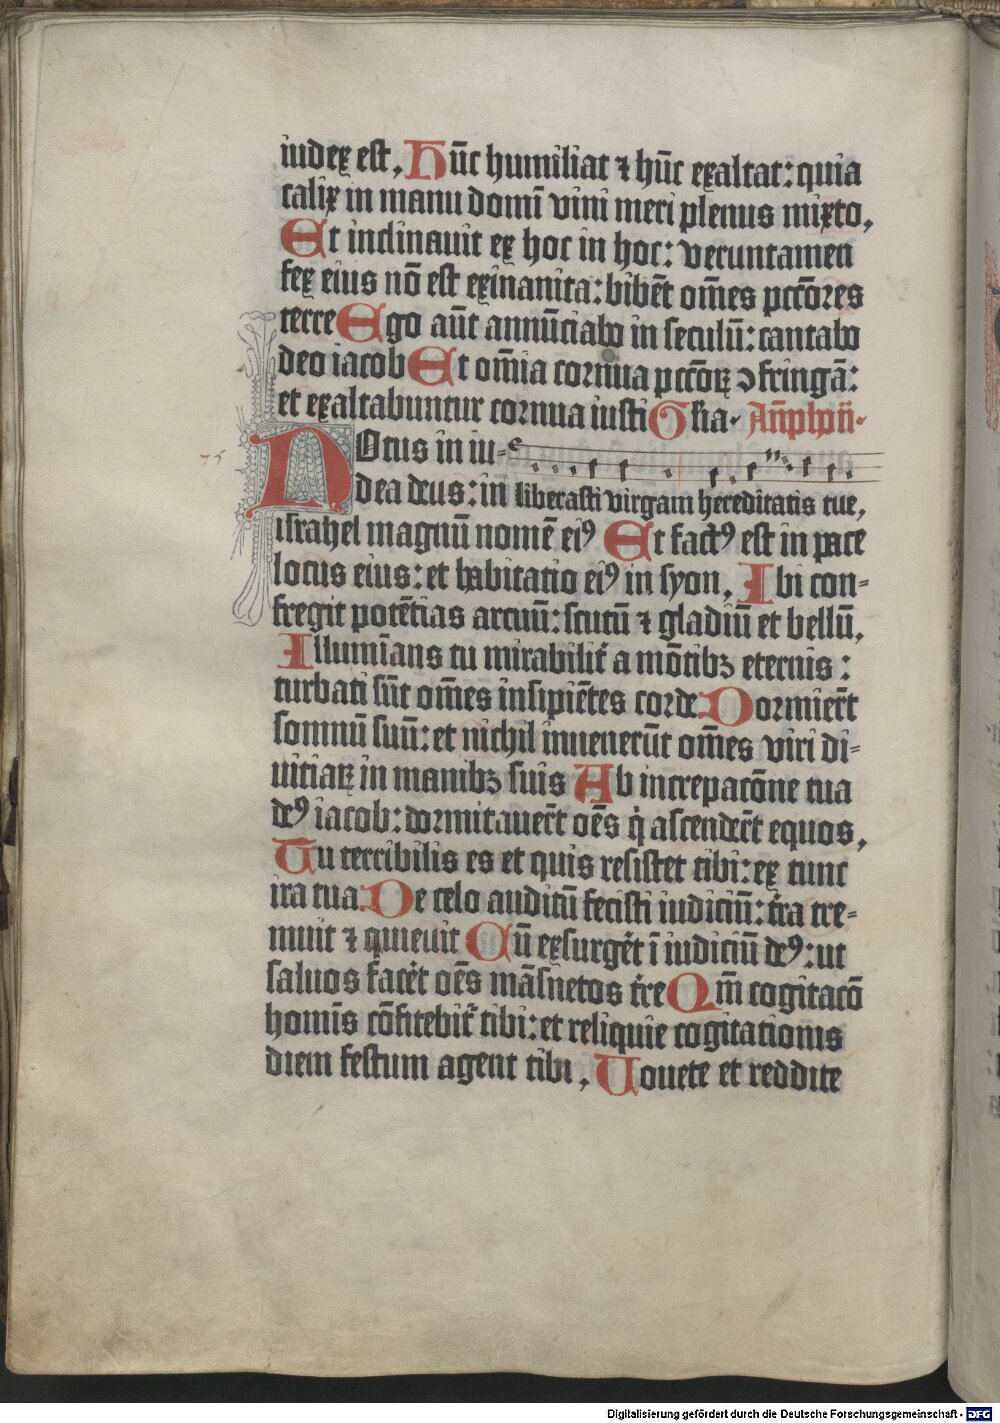 iudex est, Hūc humiliat ⁊ hūc exaltat: quia
calix in manu domī vini meri plenus mixto,
Et inclinauit ex hoc in hoc: veruntamen
fex eius nō est exinanita: bibēt om̄es pcc̄ores
terre Ego aūt annūciabo in seculū: cantabo
deo iacob Et om̄ia cornua pcc̄oꝝ ↄfringā:
et exaltabuntur cornua iusti Gl̄ia. An̄
75
NOtus in iu-
dea deus: in liberasti virgam hereditatis tue,
israhel magnū nomē eiꝰ Et factꝰ est in pace
locus eius: et habitatio eiꝰ in syon, Ibi con-
fregit potētias arcuū: scutū ⁊ gladiū et bellū,
Illumīans tu mirabilit̄ a mōtibꝫ eternis:
turbati sūt om̄es insipiētes corde Dormier̄t
somnū suū: et nichil inuenerūt om̄es viri di-
uitiaꝝ in manibꝫ suis Ab increpacōne tua
deꝰ iacob: dormitauer̄t oēs q̄ ascender̄t equos,
Tu terribilis es et quis resistet tibi: ex tunc
ira tua De celo auditū fecisti iudiciū: t̄ra tre-
muit ⁊ quieuit Cū exsurgēt ī iudiciū deꝰ: ut
saluos facēt oēs māsuetos t̄re Qm̄ cogitacō
homīs cōfitebit̄ tibi: et reliquie cogitationis
diem festum agent tibi, Vouete et reddite
Digitalisierung gefördert durch die Deutsche Forschungsgemeinschaft - DFG